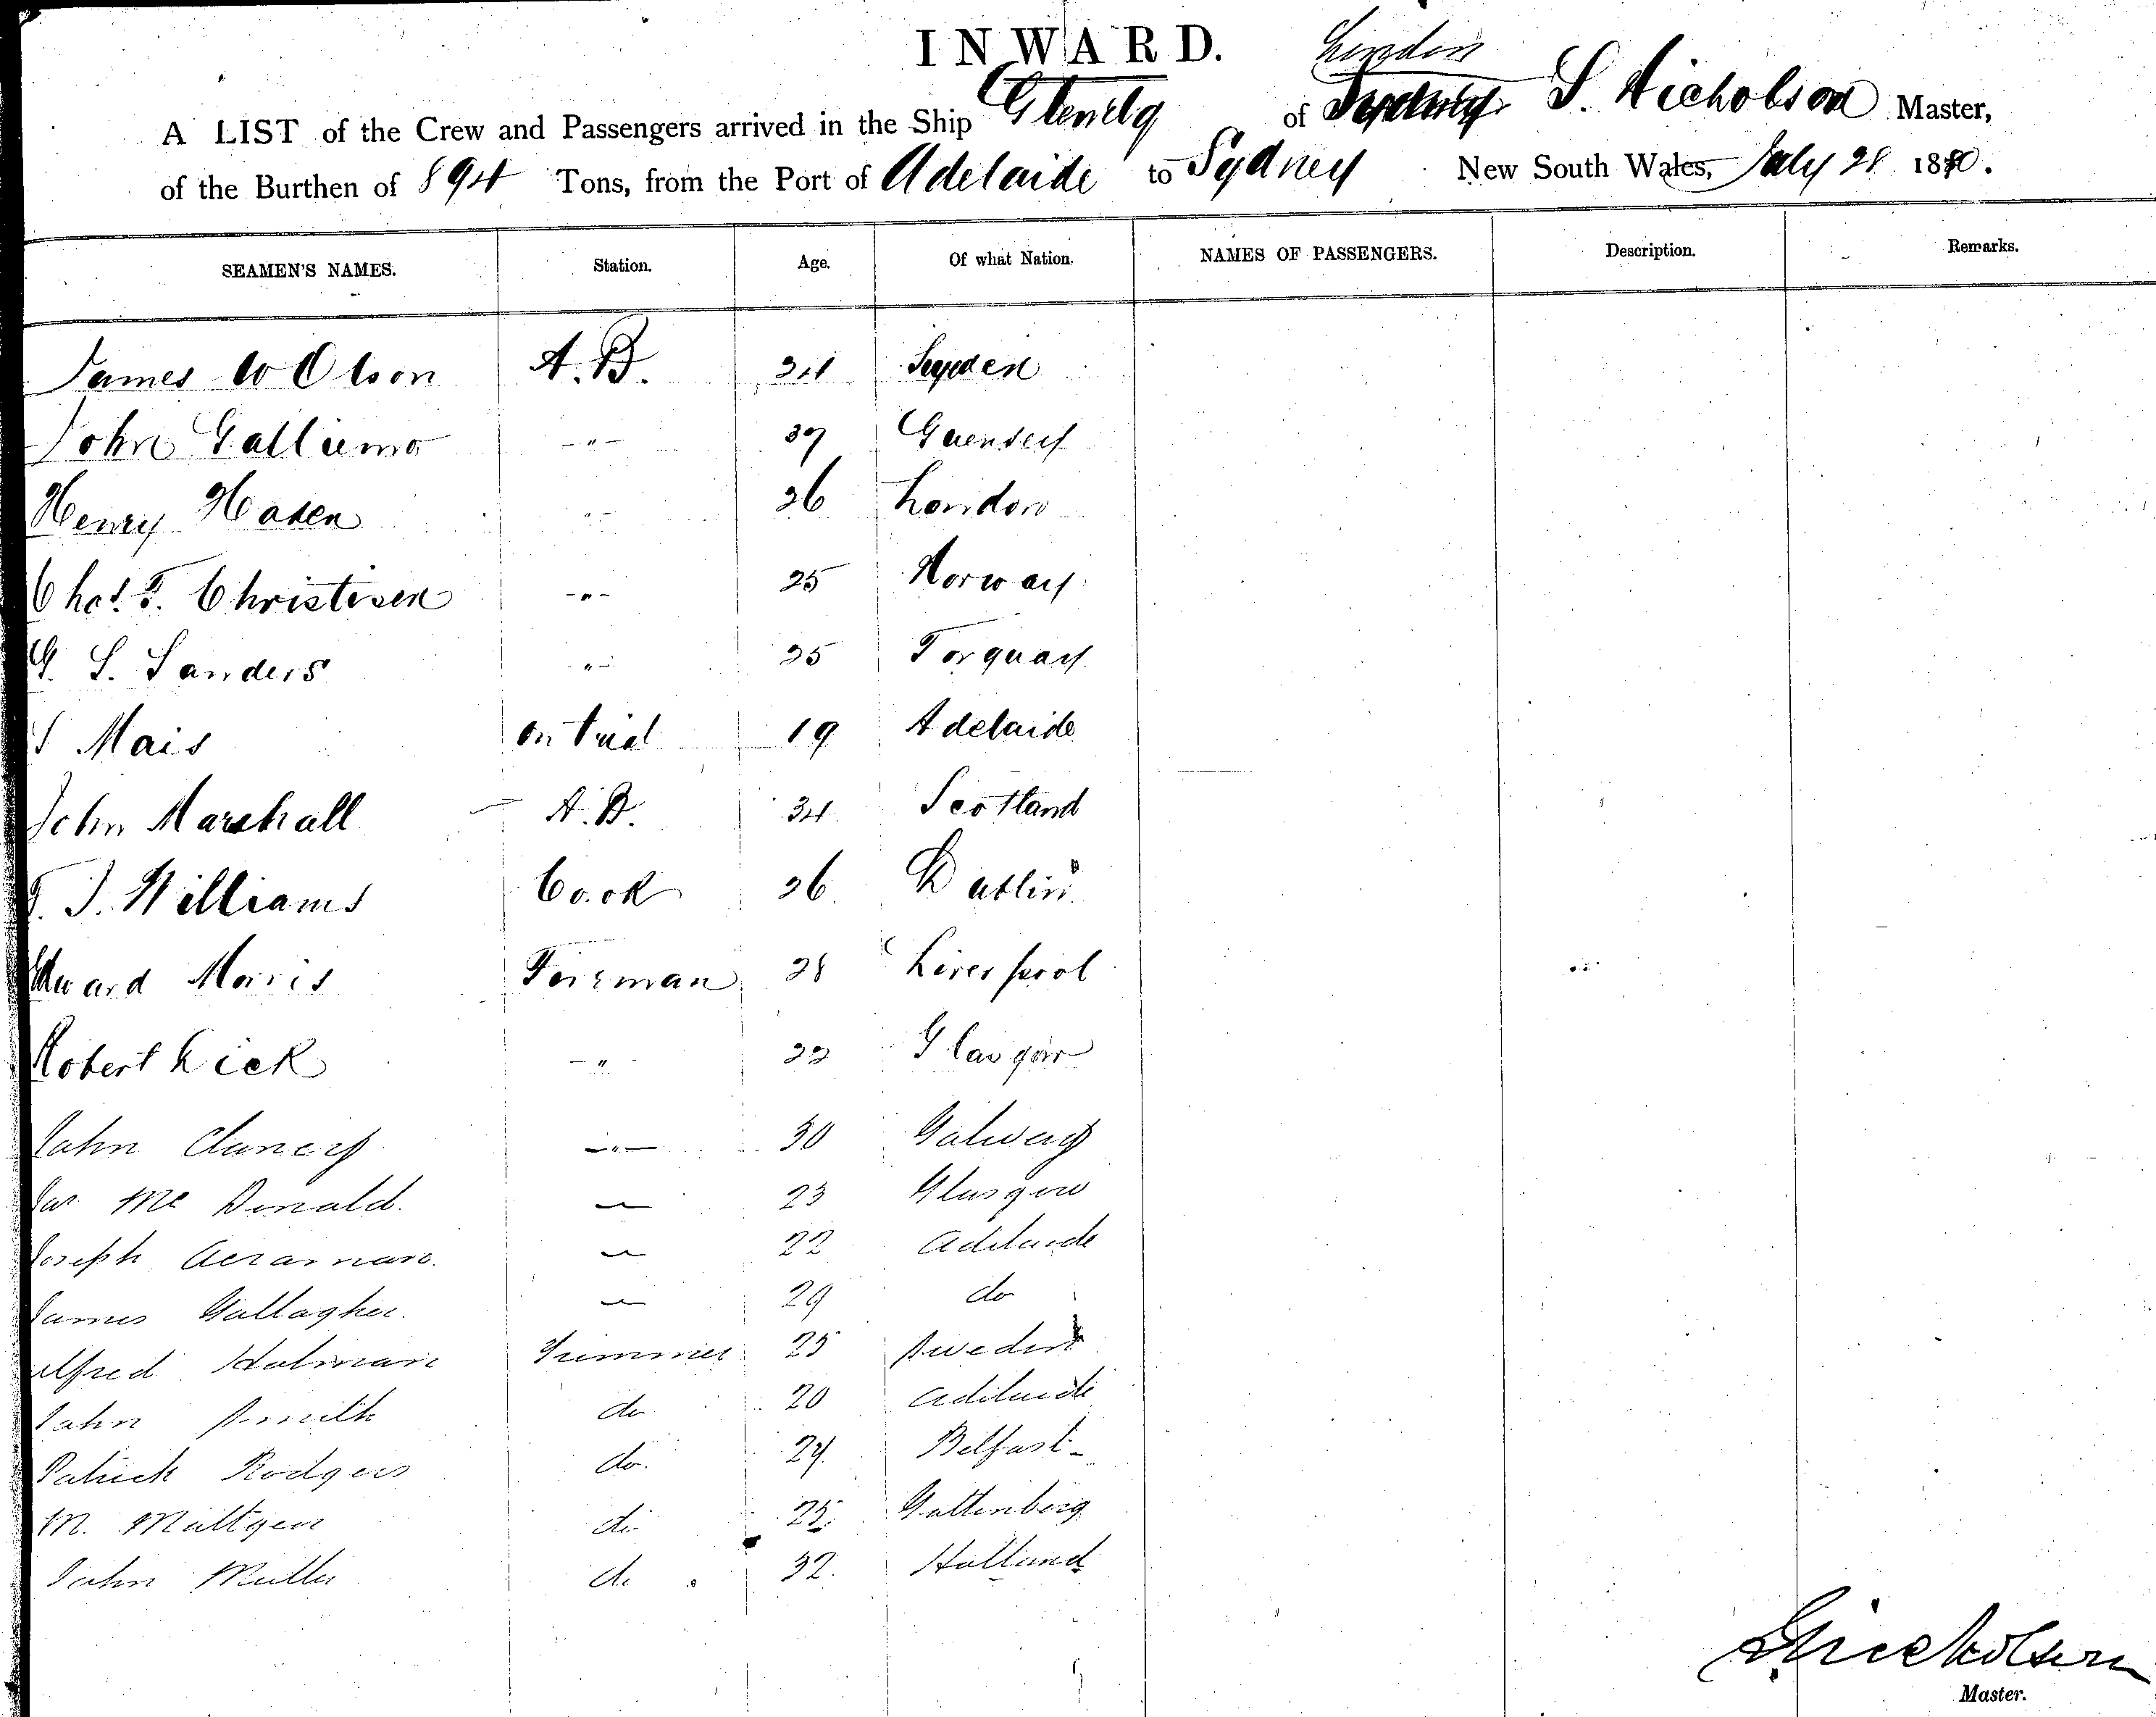 INWARD.
London
A LIST of the Crew and Passengers arrived in the Ship Glenelg of Sydney S. Nicholson Master,
of the Burthen of 894 Tons, from the Port of Adelaide to Sydney New South Wales, July 28 1880.
SEAMEN'S NAMES. Station. Age. Of what Nation. NAMES OF PASSENGERS. Description. Remarks.
James W Olson A.B. 34 Sweden
John Galliemo -"- 37 Guensey
Henry Hasen "- 26 London
Chas. F. Christesen -"- 25 Norway
G. S. Sanders "- 25 Torquay
S Mais on trial 19 Adelaide
John Marshall A.B. 34 Scotland
T. J. Williams Cook 26 Dublin
Edward Morris Fireman 28 Liverpool
Robert Lick -" 22 Glasgow
John Clancy -"- 30 Galway
Jas Mc Donald. 23 Glasgow
Joseph 22 Adelaide
James Gallagher. 29 do
Alfred Holman Trimmer 25 Sweden
John Smith do 20 Adelaide
Patrick Rodgers do. 24 Belfast
M. Mattgen do 25 Gottenberg
John Muller do 32. Holland
S Nicholson
Master.